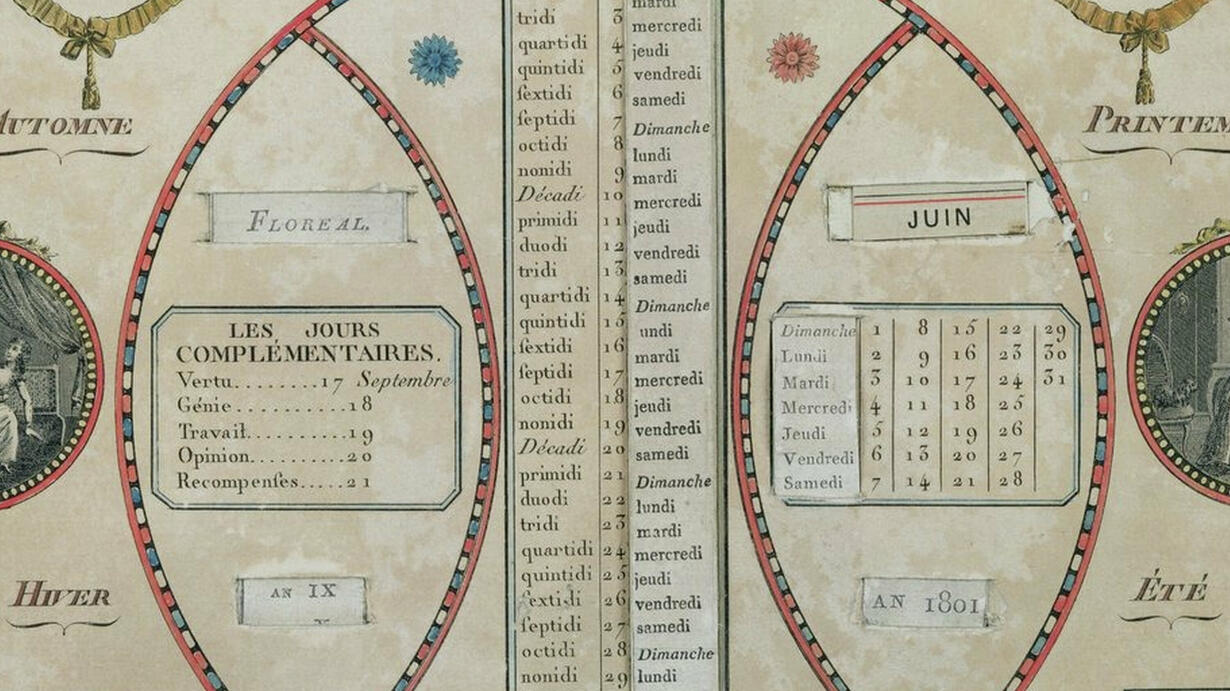 AUTOMNE
FLOREAL.
LES JOURS
COMPLÉMENTAIRES.
Vertu........17 Septembre
Génie..........18
Travail..........19
Opinion..........20
Recompenſes.....21
HIVER
AN IX
mardi
tridi 3 mercredi
quartidi 4 jeudi
quintidi 5 vendredi
ſextidi 6 samedi
ſeptidi 7 Dimanche
octidi 8 lundi
nonidi 9 mardi
Décadi 10 mercredi
primidi 11 jeudi
duodi 12 vendredi
tridi 13 samedi
quartidi 14 Dimanche
quintidi 15 undi
ſextidi 16 mardi
ſeptidi 17 mercredi
octidi 18 jeudi
nonidi 19 vendredi
Décadi 20 samedi
primidi 21 Dimanche
duodi 22 lundi
tridi 23 mardi
quartidi 24 mercredi
quintidi 25 jeudi
ſextidi 26 vendredi
ſeptidi 27 samedi
octidi 28 Dimanche
nonidi 29 lundi
PRINTEM
JUIN
Dimanche 1 8 15 22 29
Lundi 2 9 16 23 30
Mardi 3 10 17 24 31
Mercredi 4 11 18 25
Jeudi 5 12 19 26
Vendredi 6 13 20 27
Samedi 7 14 21 28
AN 1801
ÉTÉ